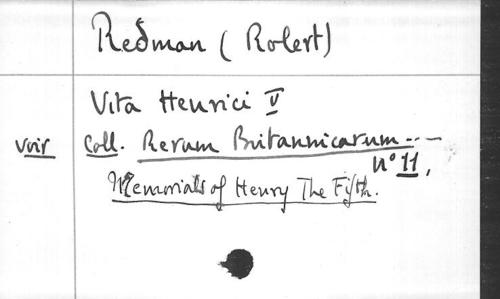 Redman ( Robert)
Vita Henrici V
voir Coll. Rerum Britannicarum ----
n° 11.
Memorials of Henry The Fifth.